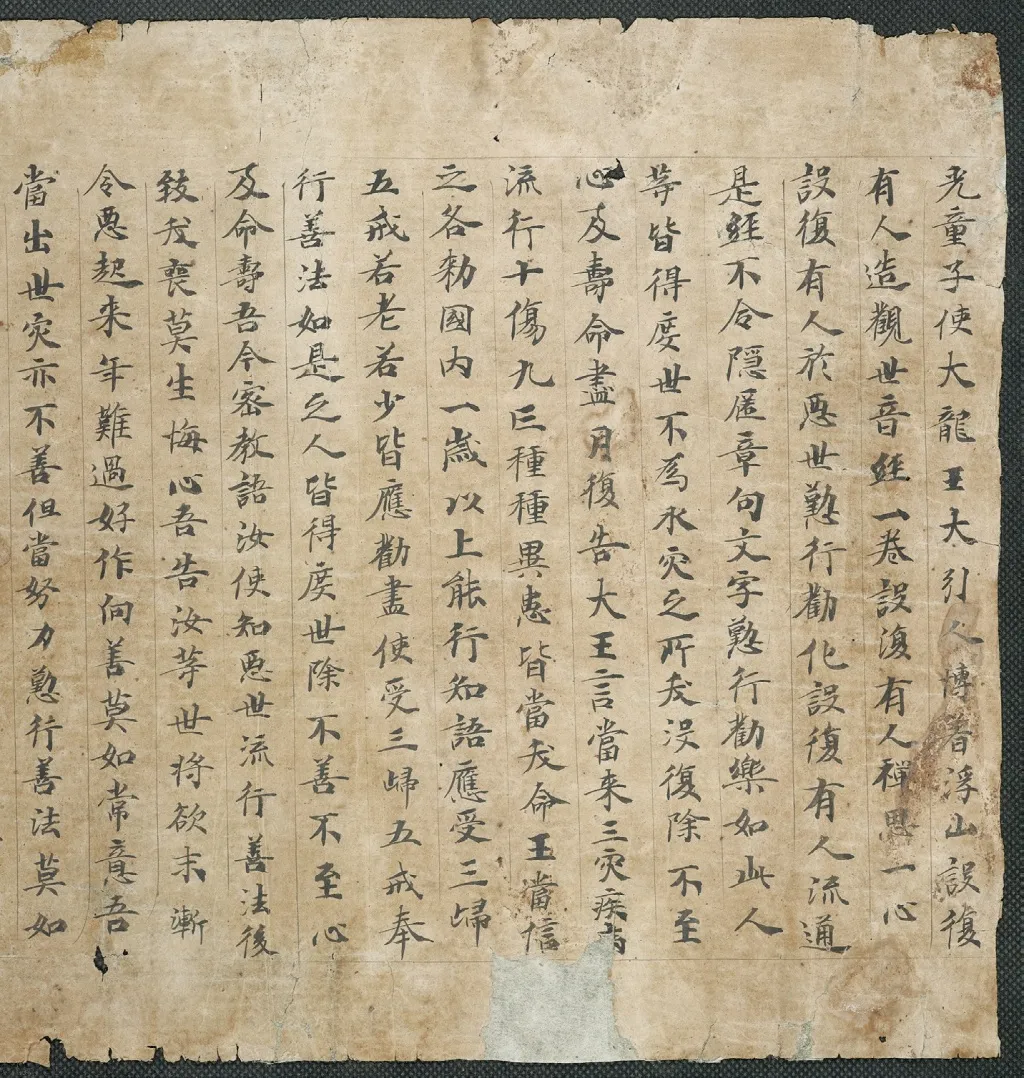 光童子使大龍王大引人博著浮山設復
有人造觀世音經一卷設復有人禪思一心
設復有人於惡世懃行勸化設復有人流通
是經不令隱匿章句文字懃行勸樂如此人
等皆得度世不為水灾之所沒復除不至
心及壽命盡月復告大王言當来三灾疾病
流行十傷九亡種種異患皆當命王當信
之各勑國内一歲以上能行知語應受三歸
五戒若老若少皆應勸盡使受三歸五戒奉
行善法如是之人皆得度世除不善不至心
及命壽吾今密教語汝使知惡世流行善法後
莫生悔心吾告汝等世將欲末漸
令惡起来年難過好作向善莫如常意吾
當出世灾亦不善但當努力懃行善法莫如